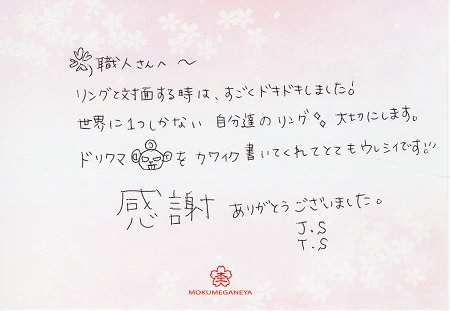 職人さんへ 〜
リングと対面する時は、すごくドキドキしました!
世界に1つしかない 自分達のリング 大切にします。
ドリクマ を カワイク書いてくれてとてもウレシイです!!
感謝 ありがとうございました。
J.S
T.S
MOKUMEGANEYA